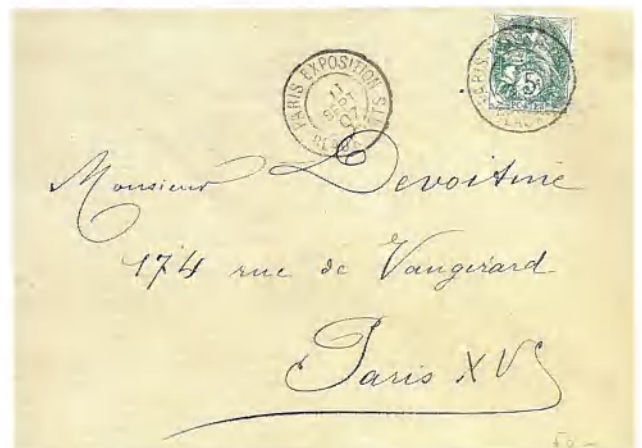 PARIS EXPOSITION
5
POSTES
Monsieur Devoitine
174 rue de Vaugirard
Paris XV